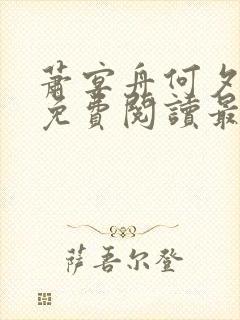 蕭宴舟何夕
免費閱讀最
薩吾尔登